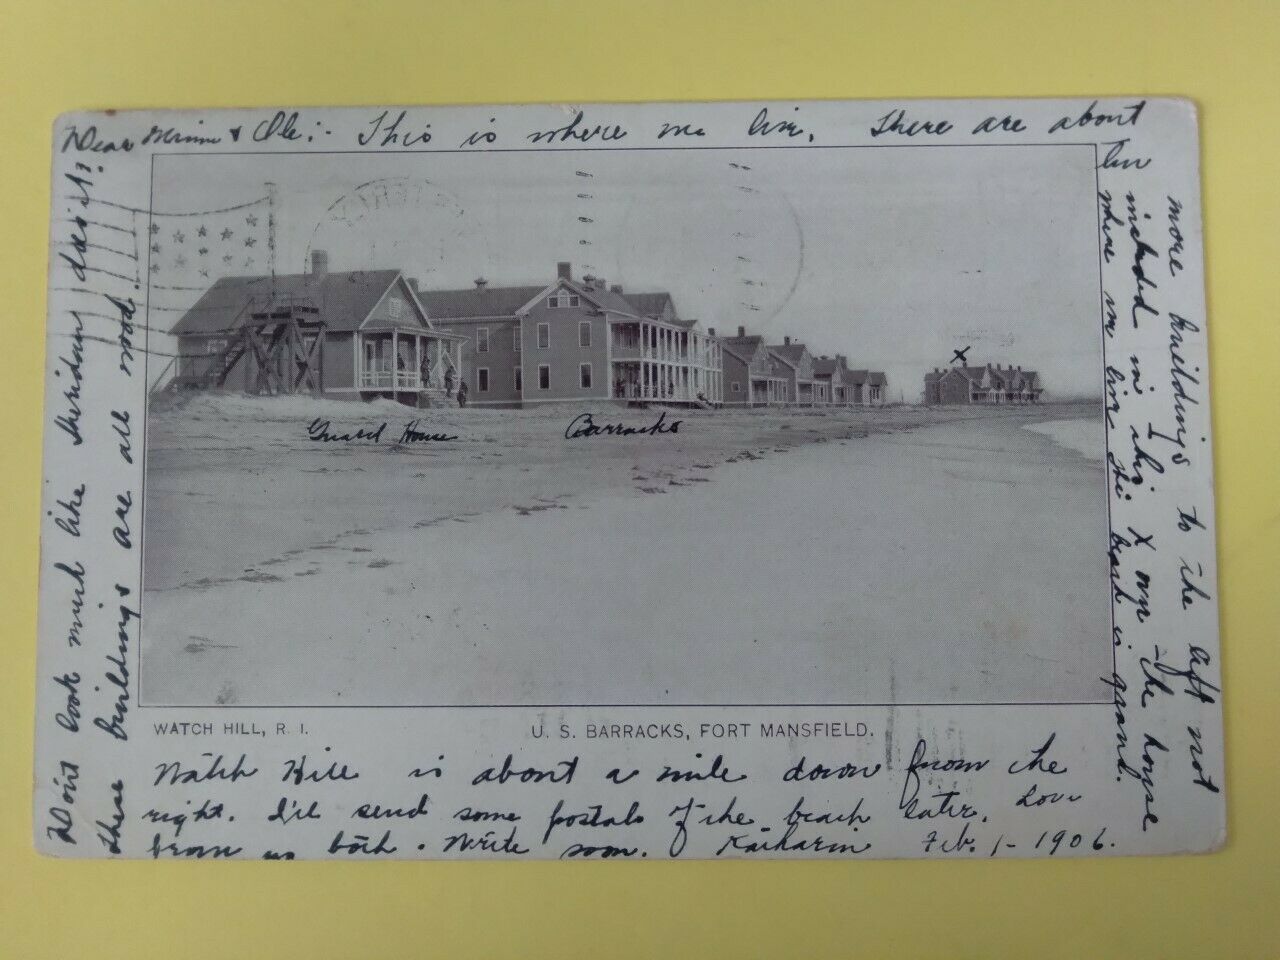 Dear Minnie & Ole:- This is where we live. There are about
ten
more buildings to the left not
included in this X over the house
where we live the beach is grand.
Don't look much like Sheridan does it?
these buildings are all wood.
Guard House
Barracks
X
WATCH HILL, R. I.
U. S. BARRACKS, FORT MANSFIELD.
Watch Hill is about a mile down from the
right. I'll send some postals of the beach later. Love
from us both. Write soon. Katharin Feb. 1- 1906.